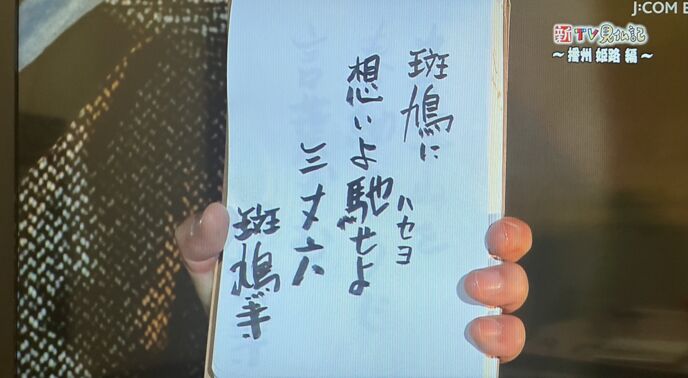 J:COM B
新TV見仏記
～播州 姫路 編～
斑鳩に
想いよ馳せよ
ハセヨ
三丈六
斑鳩寺